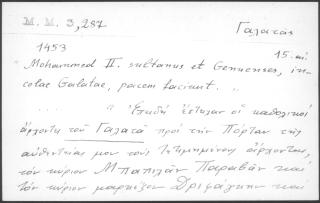 M. M. 3,287
Γαλατᾶς
1453
15. αἰ.
"Mohammed II. sultanus et Genuenses, in-
colae Galatae, pacem faciunt. "
.... " Ἐπειδὴ ἔστειλαν οἱ καθολικοὶ
ἄρχοντες τοῦ Γαλατᾶ πρὸς τὴν Πόρταν τῆς
αὐθεντείας μου τοὺς τετιμημένους ἄρχοντας,
τὸν κύριον Μπαπιλᾶν Παραβᾶν καὶ
τὸν κύριον μαρκέζον Δριφάγκην καὶ